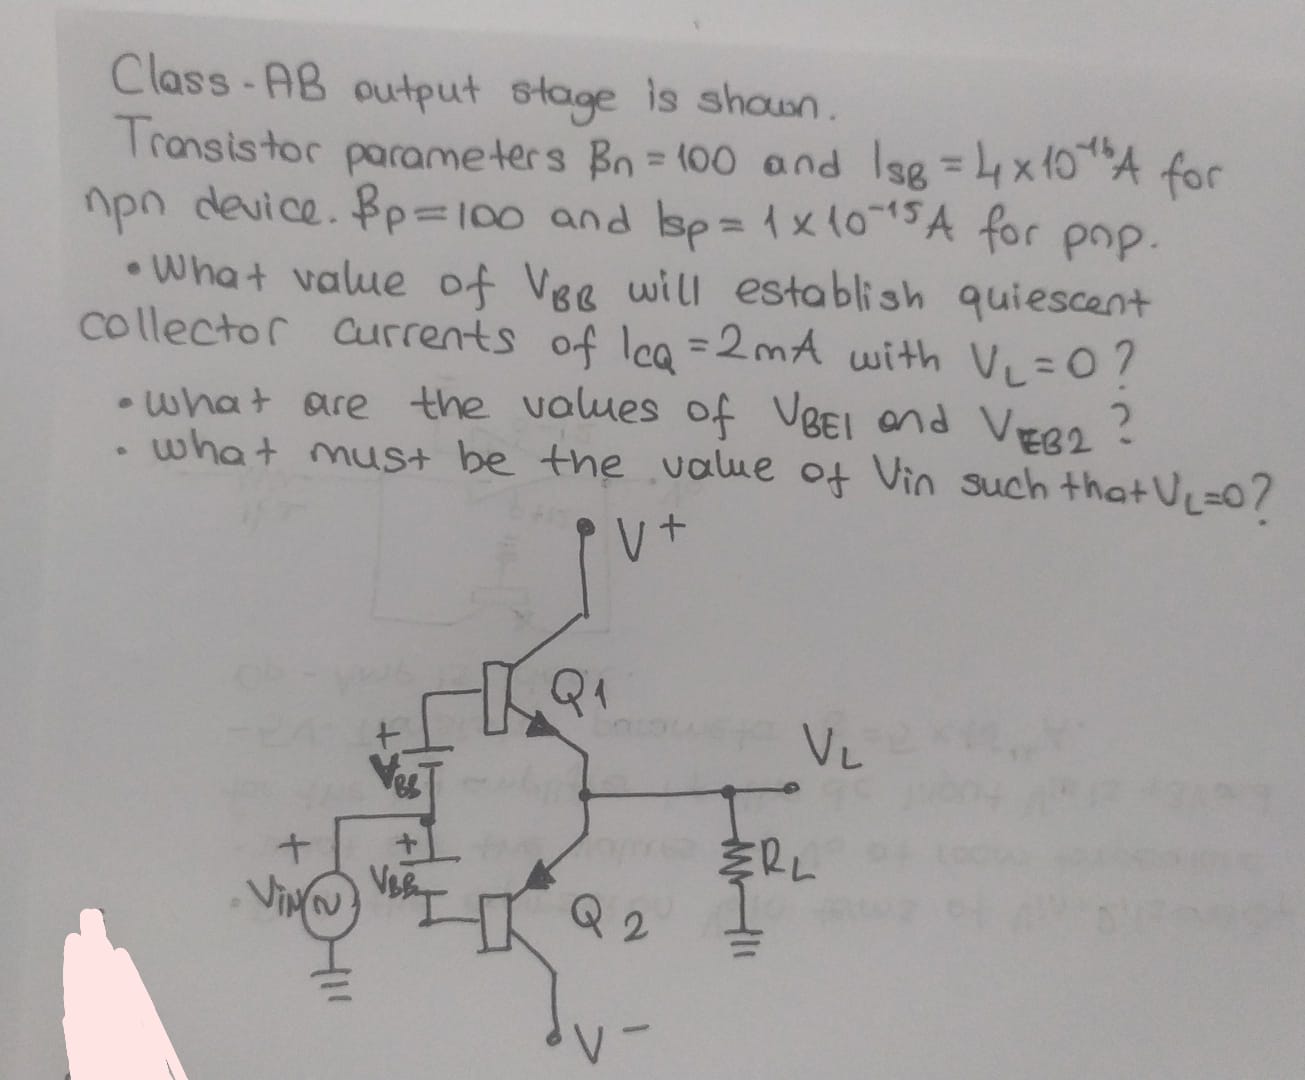 Class-AB output stage is shown.
Transistor parameters βn = 100 and ISB = 4 x 10⁻¹⁶A for
npn device. βp = 100 and Isp = 1 x 10⁻¹⁵A for pnp.
• What value of VBB will establish quiescent
collector currents of ICQ = 2mA with VL = 0?
• what are the values of VBE1 and VEB2?
• what must be the value of Vin such that VL=0?
V+
Q1
+
VBB
VL
+
+
VIN
VBB
RL
Q2
V-